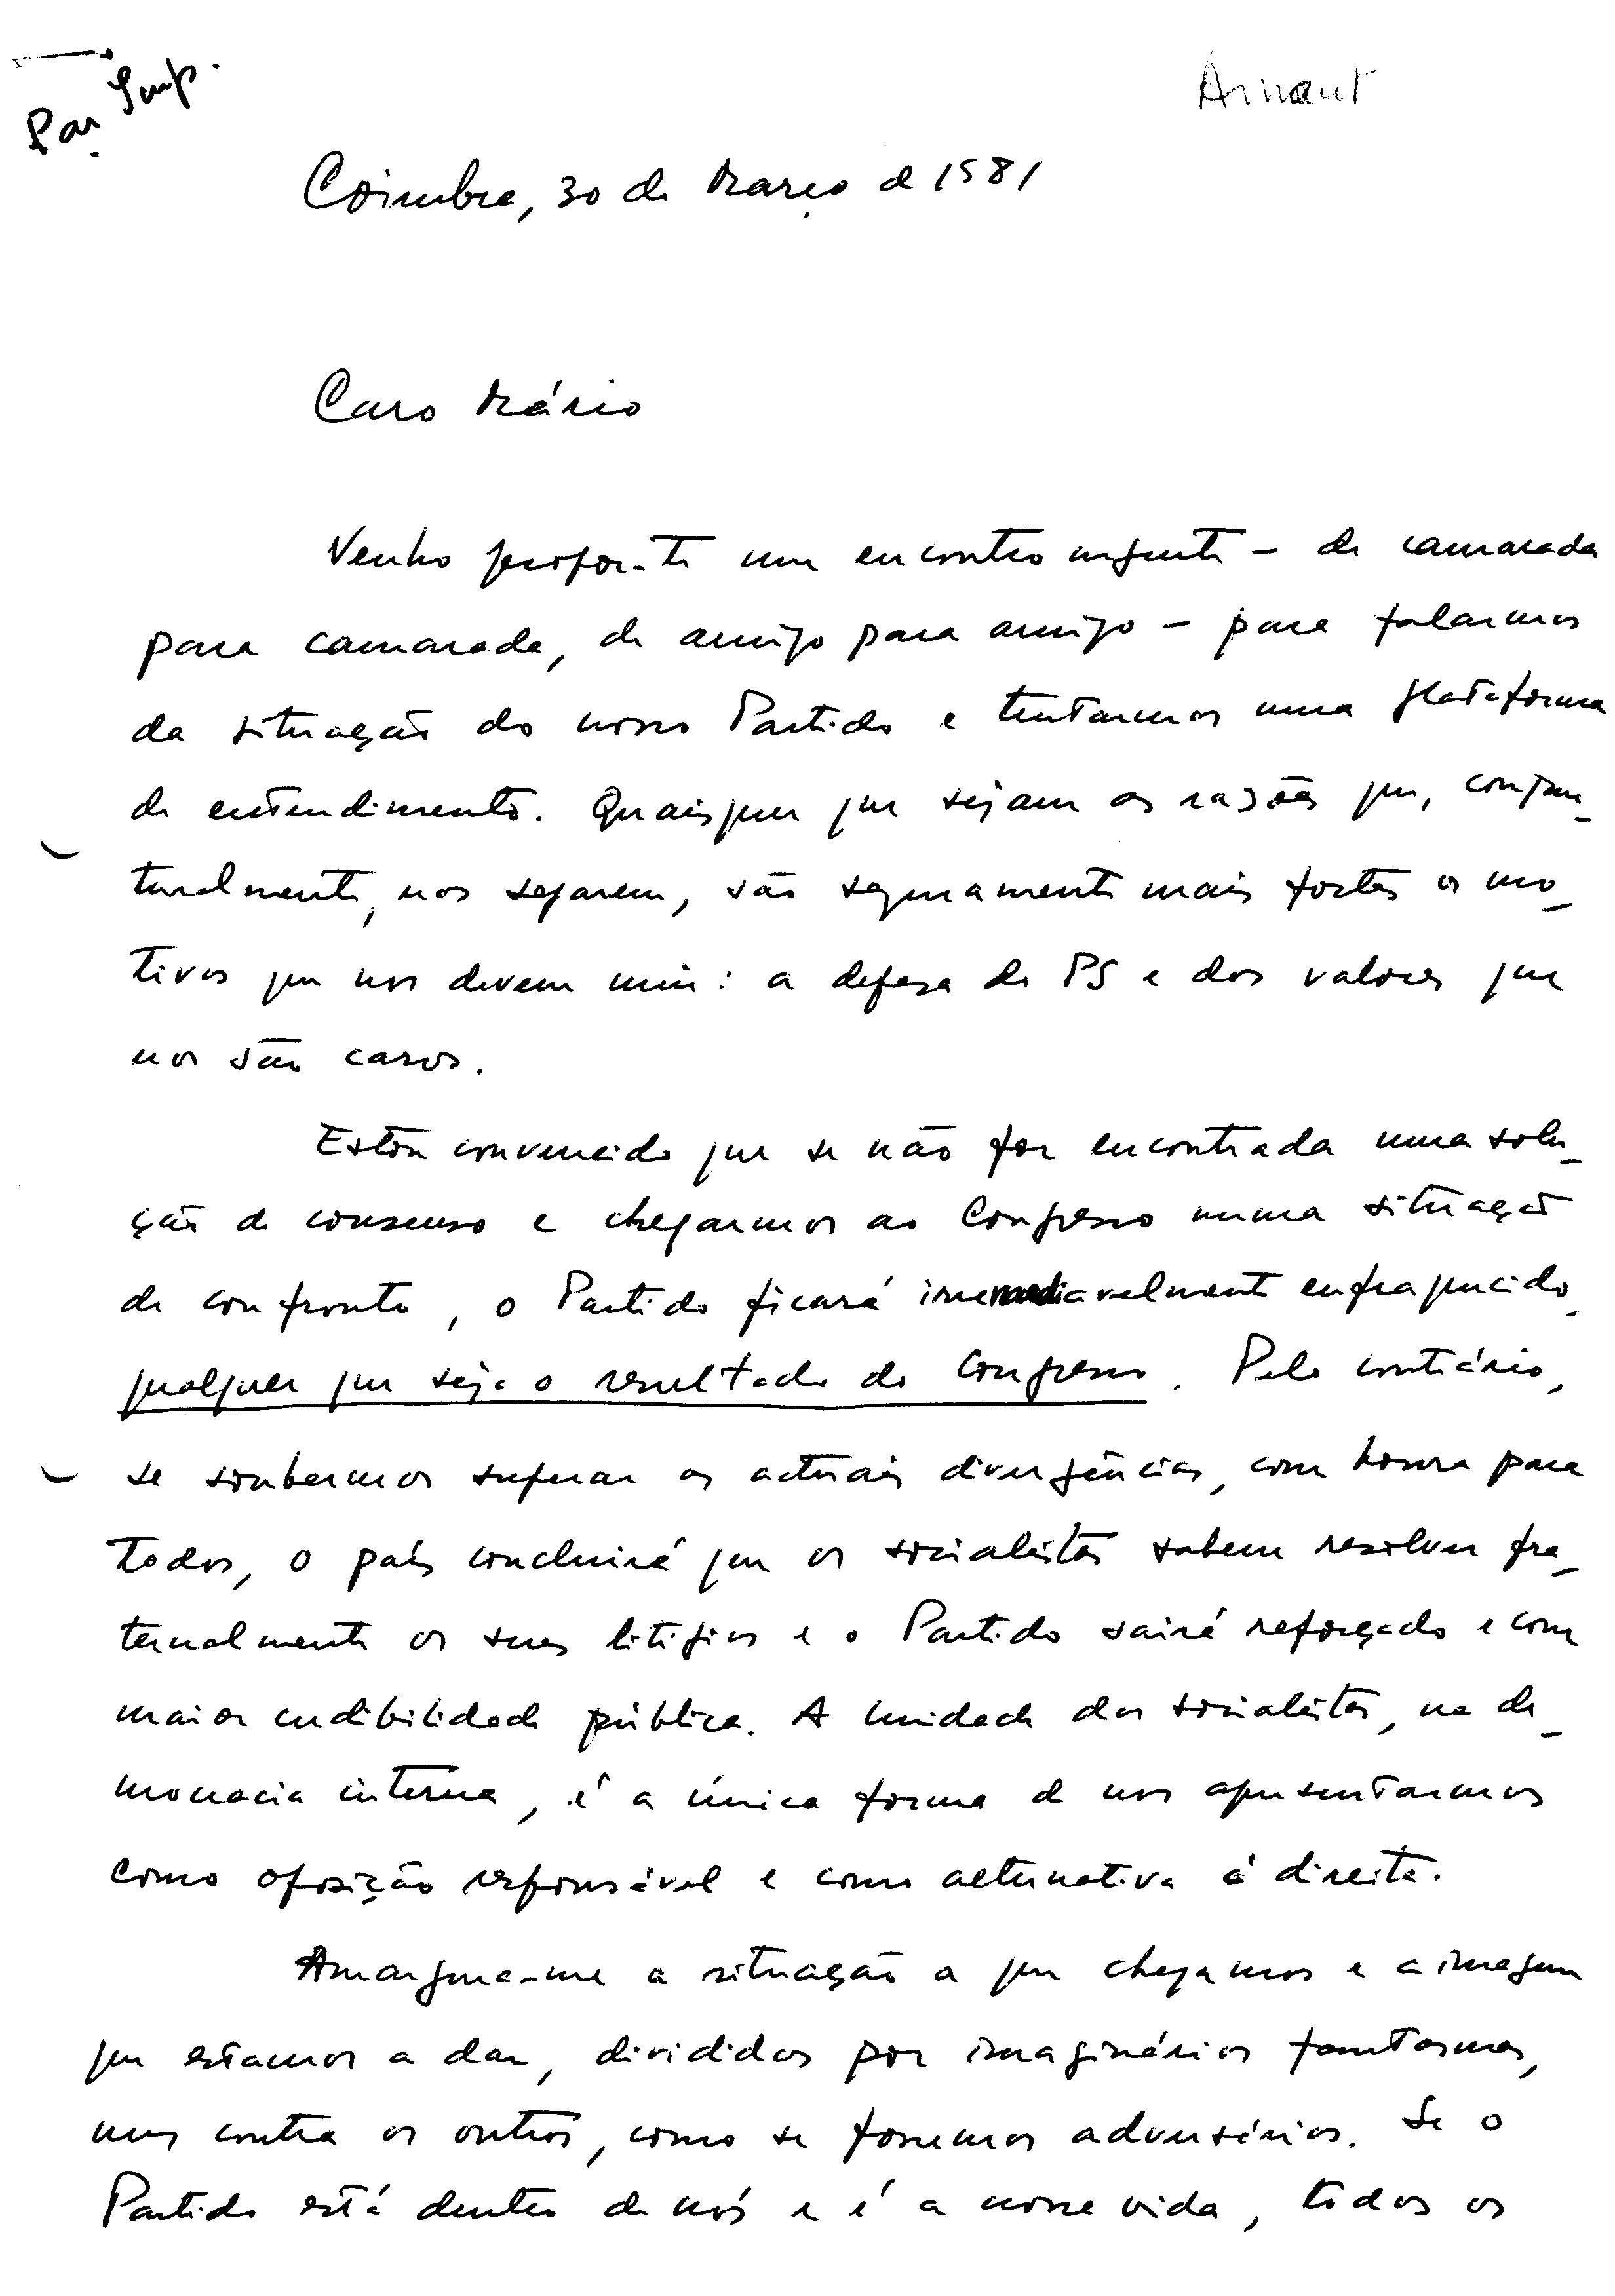 Arnaut
Coimbra, 30 de Março de 1981
Caro Mário
Venho propor-te um encontro urgente – de camarada
para camarada, de amigo para amigo – para falarmos
da situação do nosso Partido e tentarmos uma plataforma
de entendimento. Quaisquer que sejam as razões que, conjun-
turalmente, nos separem, são seguramente mais fortes os mo-
tivos que nos devem unir: a defesa do PS e dos valores que
nos são caros.
Estou convencido que se não for encontrada uma solu-
ção de consenso e chegarmos ao Congresso numa situação
de confronto, o Partido ficará irremediavelmente enfraquecido,
qualquer que seja o resultado do Congresso. Pelo contrário,
se soubermos superar as actuais divergências, com honra para
todos, o país concluirá que os socialistas sabem resolver fra-
ternalmente os seus litígios e o Partido sairá reforçado e com
maior credibilidade pública. A unidade dos socialistas, na de-
mocracia interna, é a única forma de nos apresentarmos
como oposição responsável e como alternativa à direita.
Amargura-me a situação a que chegamos e a imagem
que estamos a dar, divididos por imaginários fantasmas,
uns contra os outros, como se fossemos adversários. Se o
Partido está dentro de nós e é a nossa vida, todos os